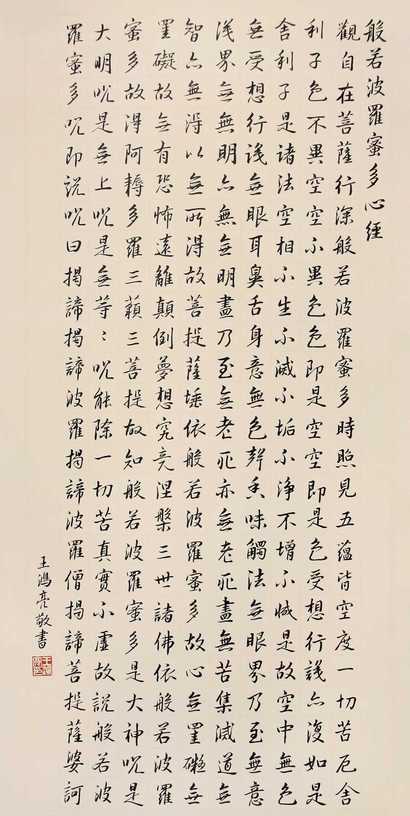 般若波羅蜜多心經
觀自在菩薩行深般若波羅蜜多時照見五蘊皆空度一切苦厄舍
利子色不異空空不異色色即是空空即是色受想行識亦復如是
舍利子是諸法空相不生不滅不垢不淨不增不減是故空中無色
無受想行識無眼耳鼻舌身意無色聲香味觸法無眼界乃至無意
識界無無明亦無無明盡乃至無老死亦無老死盡無苦集滅道無
智亦無得以無所得故菩提薩埵依般若波羅蜜多故心無罣礙無
罣礙故無有恐怖遠離顛倒夢想究竟涅槃三世諸佛依般若波羅
蜜多故得阿耨多羅三藐三菩提故知般若波羅蜜多是大神呪是
大明呪是無上呪是無等〻呪能除一切苦真實不虛故說般若波
羅蜜多呪即說呪曰揭諦揭諦波羅揭諦波羅僧揭諦菩提薩婆訶
王鴻亮敬書